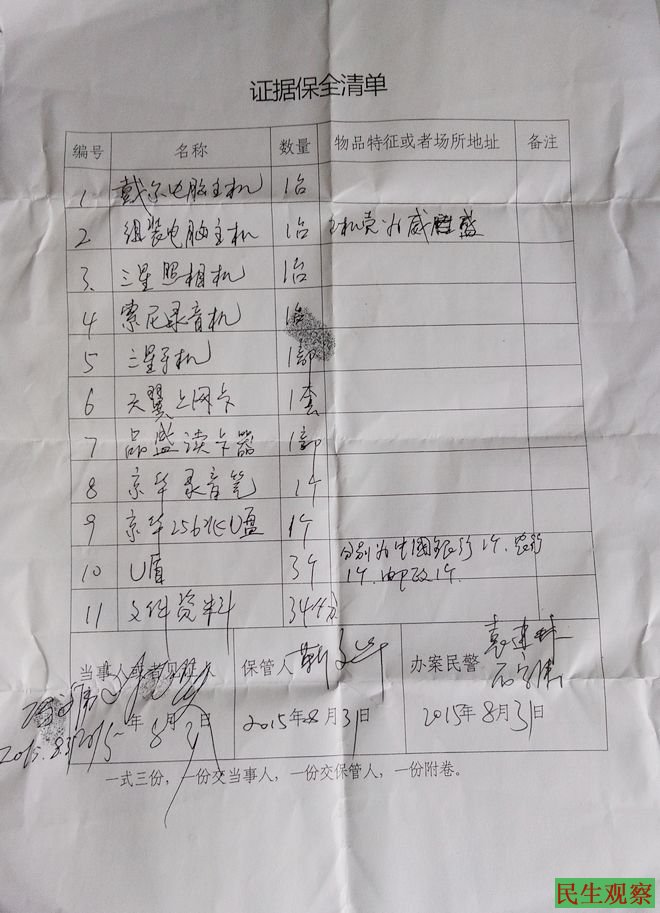 证据保全清单
编号 名称 数量 物品特征或者场所地址 备注
1 戴尔电脑主机 1台
2 组装电脑主机 1台 主机壳为威盛
3、 三星照相机 1台
4 索尼录音机 1台
5 三星手机 1部
6 天翼上网卡 1套
7 品盛读卡器 1部
8 京华录音笔 1个
9 京华256兆U盘 1个
10 U盾 3个 分别为中國银行1个、农行
1个、邮政1个.
11 文件资料 34份
当事人或者见证人 保管人 办案民警
2015年8月31日 2015年8月31日 2015年8月31日
2015.8.31
一式三份，一份交当事人，一份交保管人，一份附卷。
民生观察